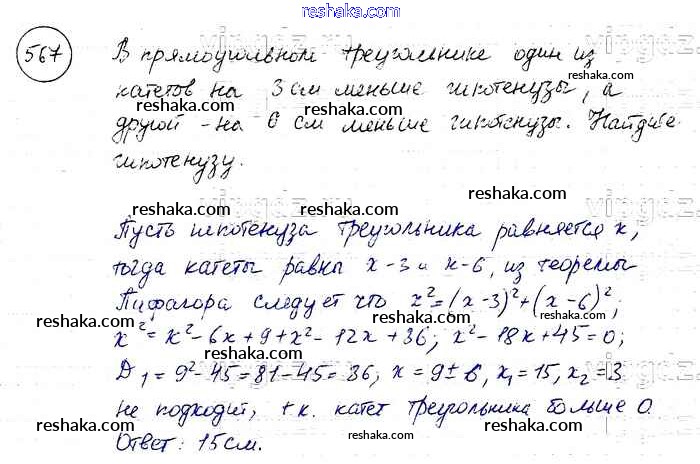 reshaka.com
567 В прямоугольном треугольнике один из
reshaka.com
катетов на 3 см меньше гипотенузы, а
reshaka.com reshaka.com
другой - на 6 см меньше гипотенузы. Найдите
гипотенузу.
reshaka.com
reshaka.com reshaka.com
Пусть гипотенуза треугольника равняется x,
тогда катеты равны x-3 и x-6, из теоремы
reshaka.com
Пифагора следует что x²=(x-3)²+(x-6)²;
reshaka.com reshaka.com
x²=x²-6x+9+x²-12x+36; x²-18x+45=0;
reshaka.com
D₁=9²-45=81-45=36; x=9±6, x₁=15, x₂=3
reshaka.com reshaka.com
не подходит, т.к. катет треугольника больше 0.
Ответ: 15 см.
reshaka.com